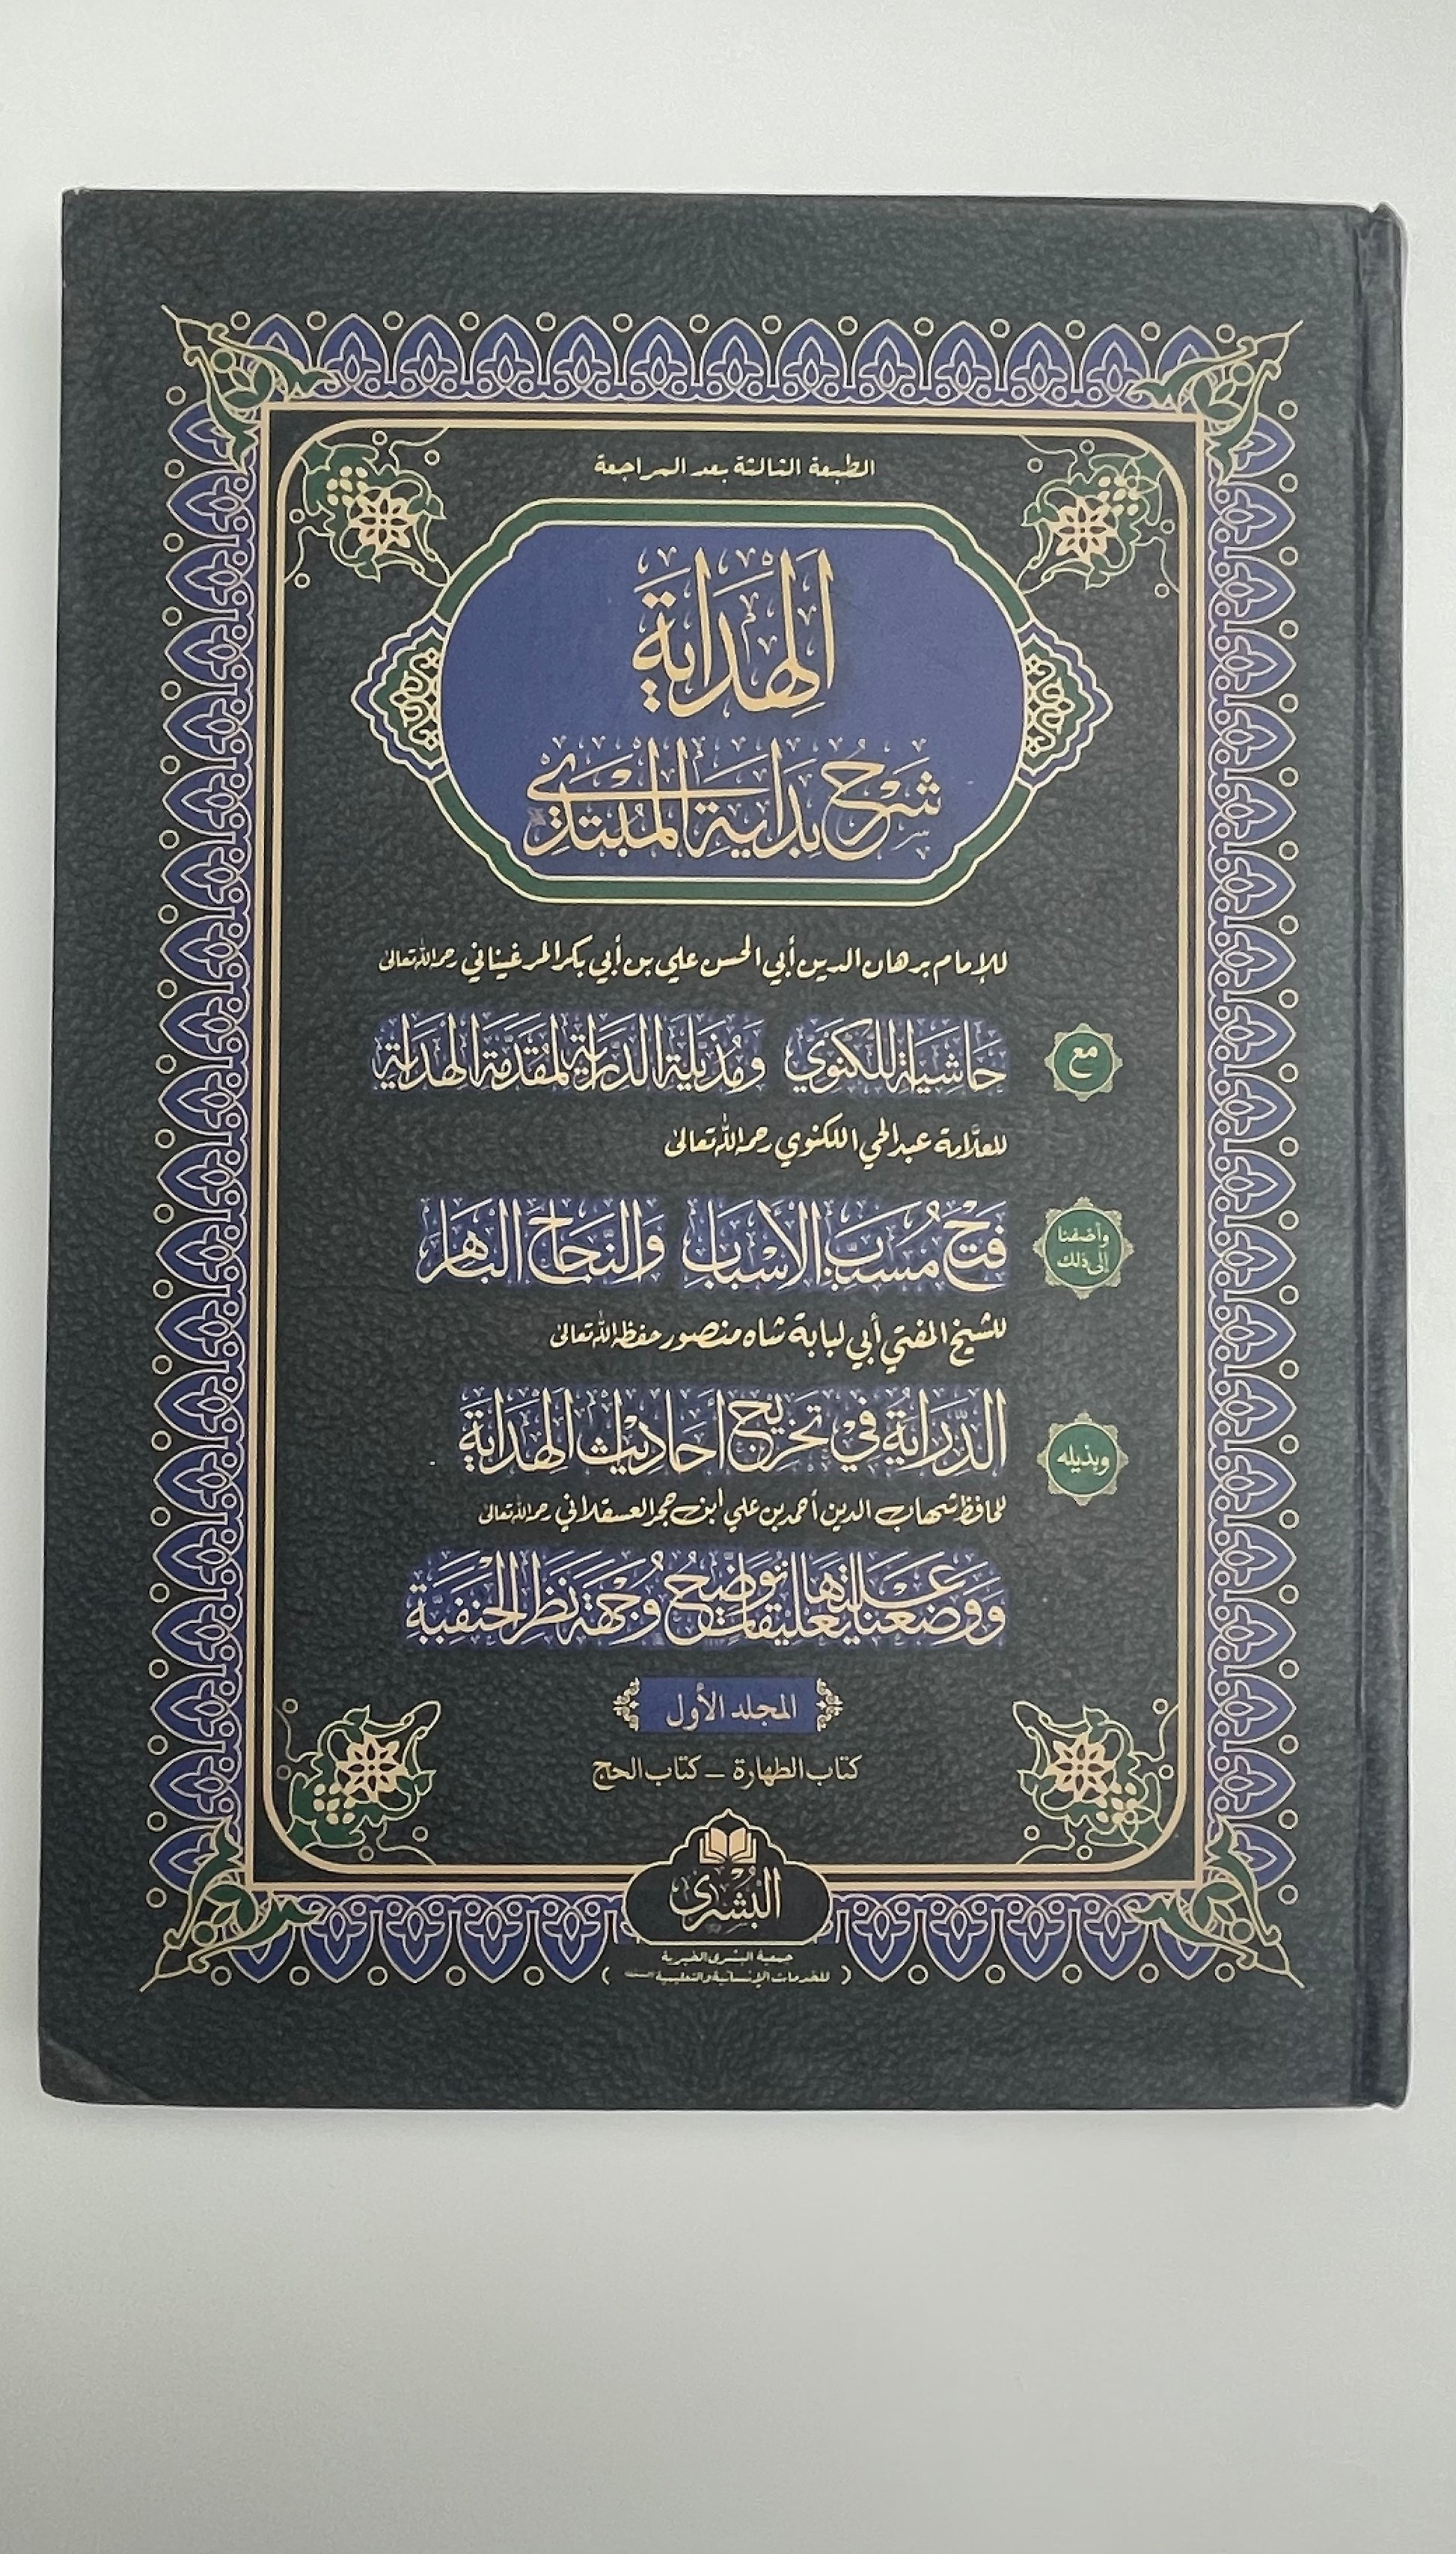 الطبعة الثالثة بعد المراجعة
الهداية
شرح بداية المبتدي
للإمام برهان الدين أبي الحسن علي بن أبي بكر المرغيناني رحمه الله تعالى
مع
حاشية اللكنوي ومذيلة الدراية لمقدمة الهداية
للعلامة عبد الحي اللكنوي رحمه الله تعالى
وأضفنا إلى ذلك
فتح مسبب الأسباب والنجاح الباهر
للشيخ المفتي أبي لبابة شاه منصور حفظه الله تعالى
وبذيله
الدراية في تخريج أحاديث الهداية
للحافظ شهاب الدين أحمد بن علي ابن حجر العسقلاني رحمه الله تعالى
ووضعنا عليها تعليقات توضح وجهة نظر الحنفية
المجلد الأول
كتاب الطهارة – كتاب الحج
البشرى
جمعية البشرى الخيرية
(للخدمات الإنسانية والتعليمية)